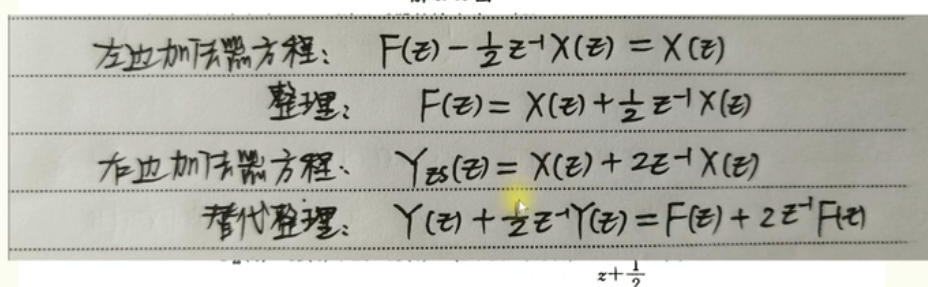 左边加法器方程: F(z) - 1/2 z⁻¹X(z) = X(z)
整理: F(z) = X(z) + 1/2 z⁻¹X(z)
右边加法器方程: Yzs(z) = X(z) + 2z⁻¹X(z)
替代整理: Y(z) + 1/2 z⁻¹Y(z) = F(z) + 2z⁻¹F(z)
z + 1/2